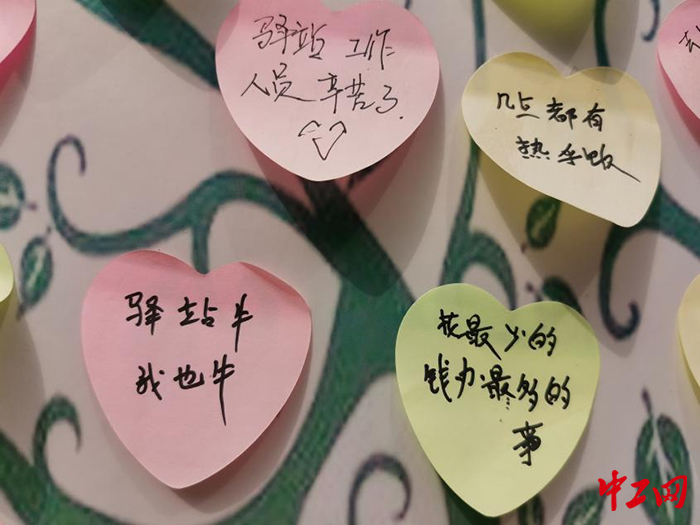 驿站工作
人员辛苦了
几点都有
热乎饭
驿站牛
我也牛
花最少的
钱办最多的
事
中工网